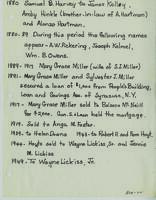 1880- Samuel B. Harvey to James Kelley,
Andy Hinkle (brother-in-law of A. Hartman)
and Alonzo Hartman.
1880-89 During this period the following names
appear - A.W. Pickering, Joseph Kelmel,
Wm. B. Owens.
1889-1917 Mary Grace Miller (wife of S.I. Miller)
1891- Mary Grace Miller and Sylvester I. Miller
secured a loan of from People's Building,
Loan and Savings Ass. of Syracuse, N.Y.
1917- Mary Grace Miller sold to Palace McNeill
for $2,000. Gun. Loan held the mortgage.
1919. Sold to Anga M. Foster.
1936- to Helen Drama 1943- to Robert H. and Fern Hoyt.
1944- Hoyts sold to Wayne Lickiss, Sr. and Jennie
M. Lickiss
1949- To Wayne Lickiss, Jr.